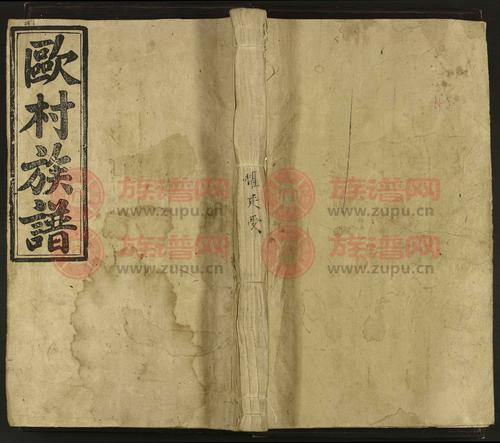 歐村族譜
族谱网
www.zupu.cn
族谱网
www.zupu.cn
族谱网
www.zupu.cn
族谱网
www.zupu.cn